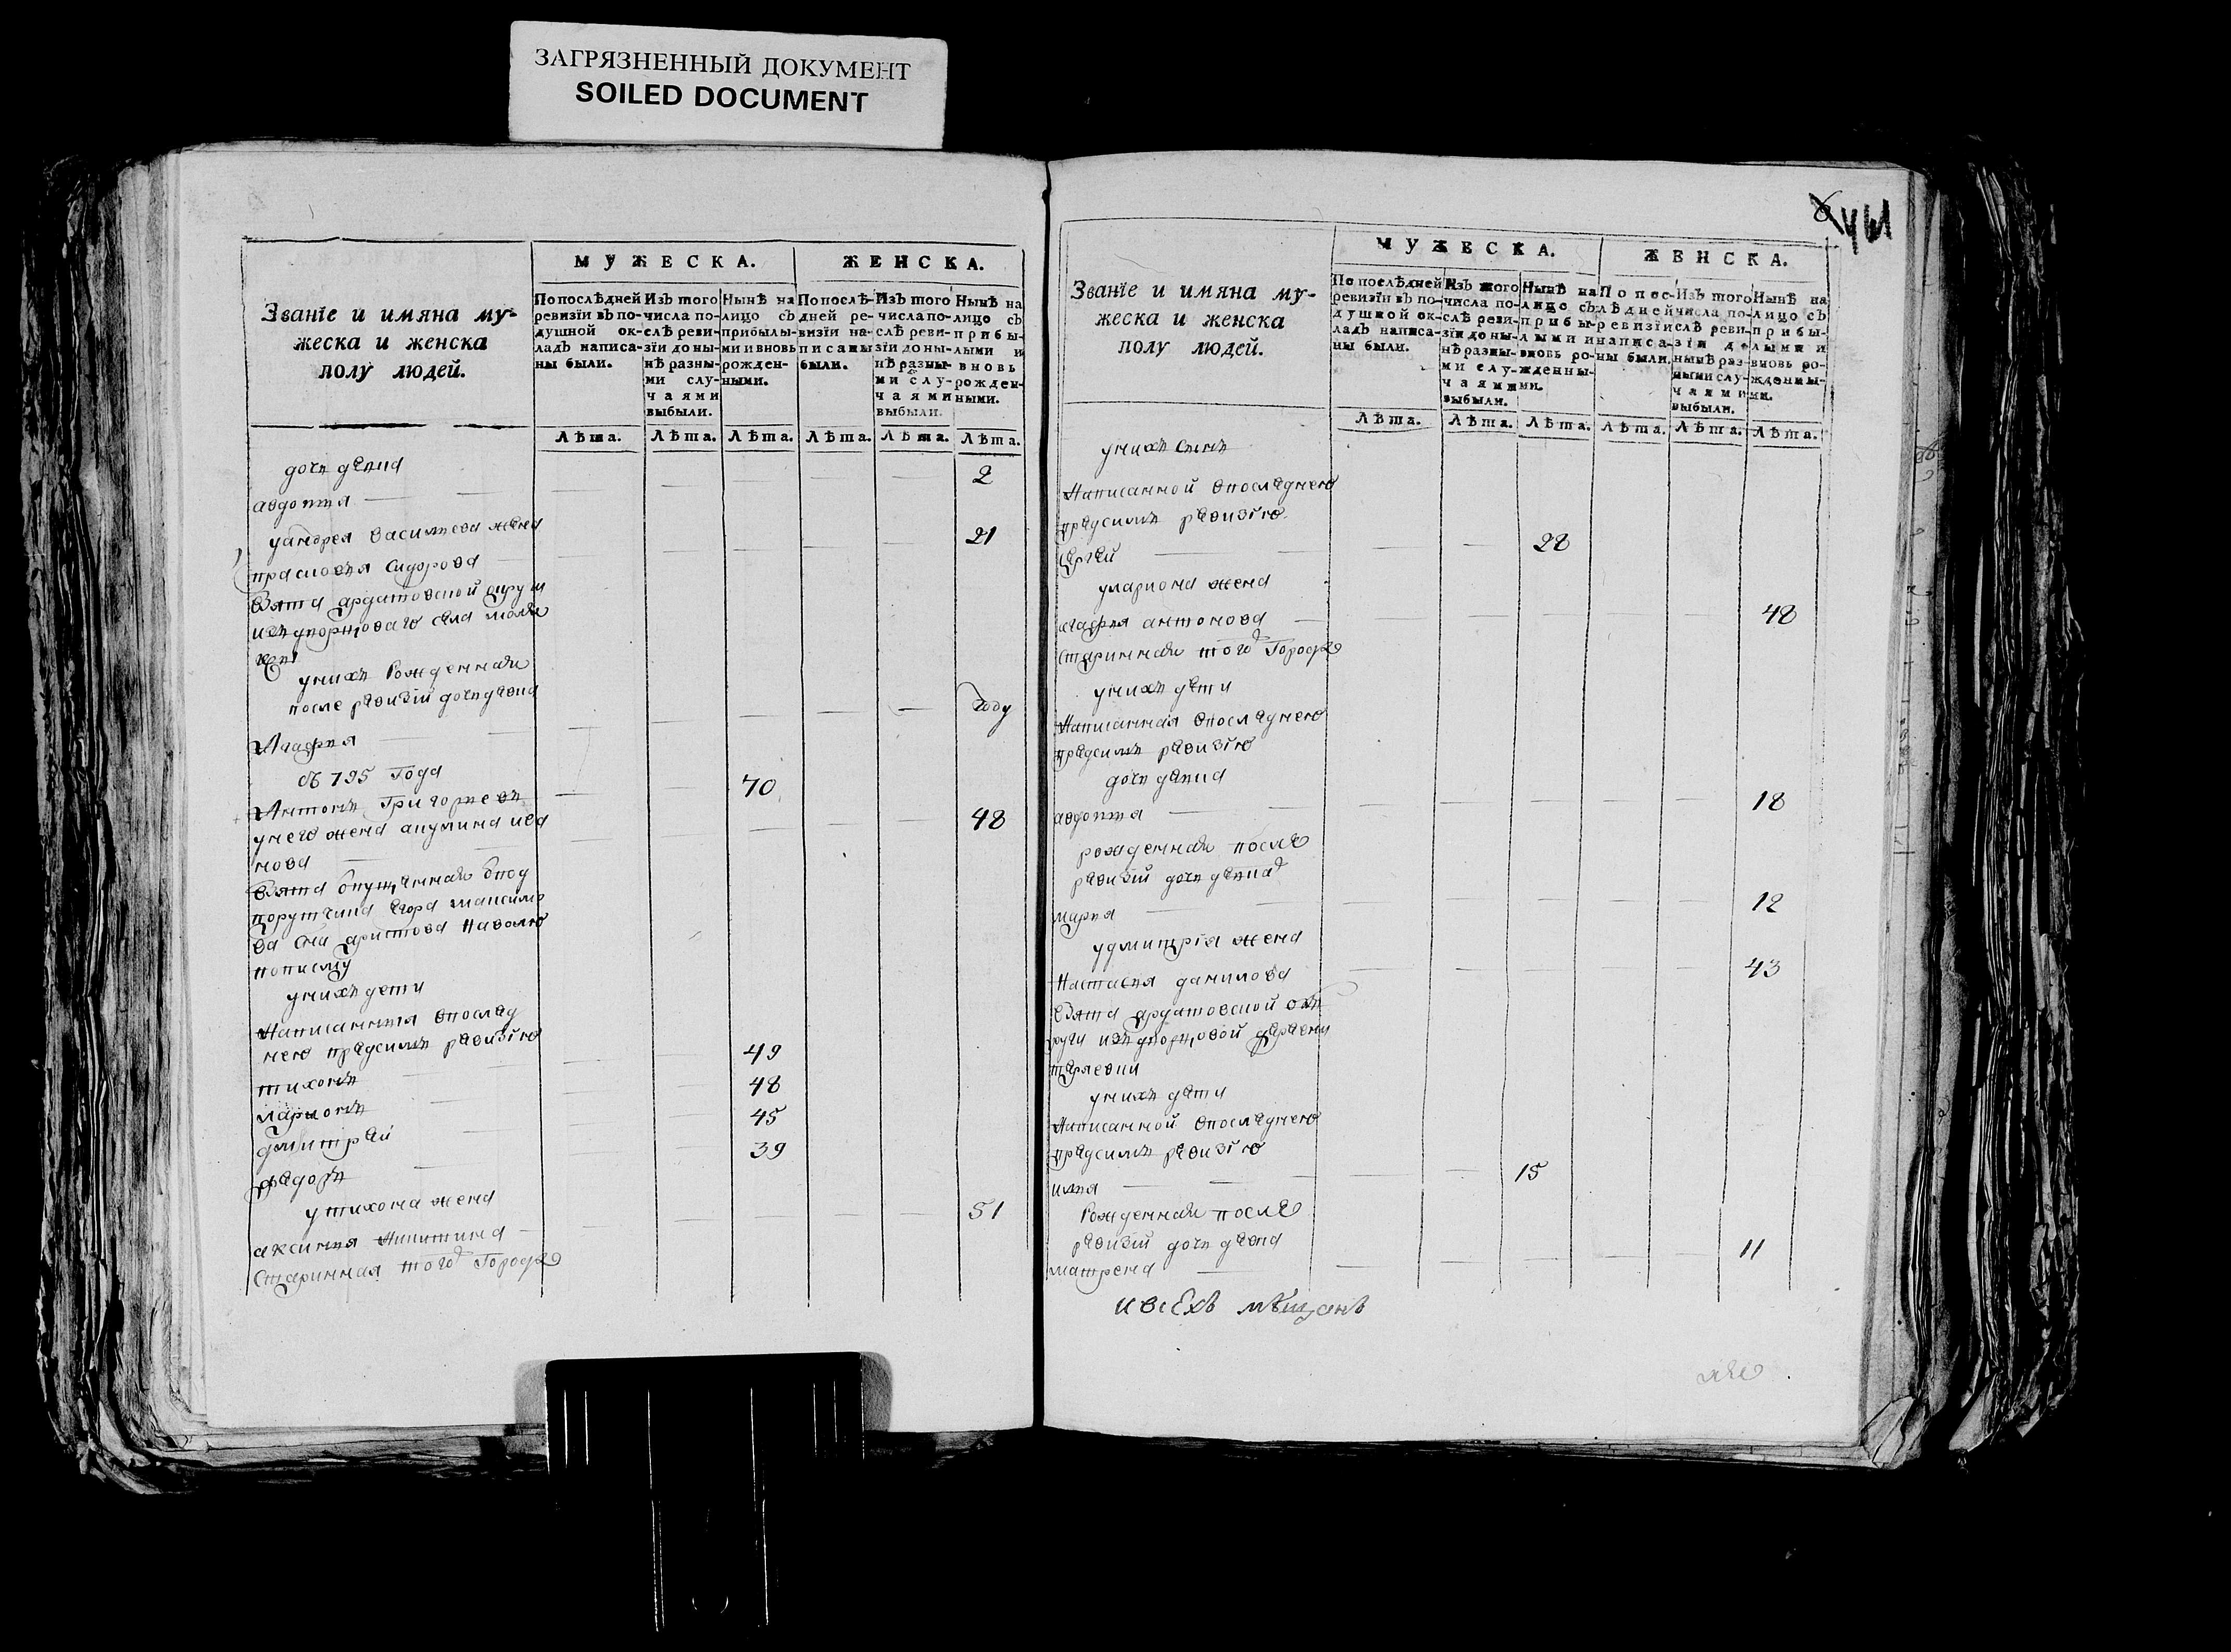 ЗАГРЯЗНЕННЫЙ ДОКУМЕНТ
SOILED DOCUMENT
Званїе и имяна му-
жеска и женска
полу людей.
МУЖЕСКА.
ЖЕНСКА.
По послѣдней ревизїи въ по-душной ок-ладъ написа-ны были.
Изъ того числа по-слѣ реви-зїи до ны-нѣ разны-ми слу-чаями выбыли.
Нынѣ на лицо съ прибылы-ми и вновь рожден-ными.
По послѣ-дней ре-визїи на-писаны были.
Изъ того числа по-слѣ реви-зїи до ны-нѣ разны-ми слу-чаями выбыли.
Нынѣ на лицо съ прибы-лыми и вновь рожден-ными.
Лѣта. Лѣта. Лѣта. Лѣта. Лѣта. Лѣта.
дочь девка
авдотья 2
у андрея васильева жена
прасковья сидорова 21
взята ардатовской округи
из
села
у них рожденная
после ревизïи дочь девка
Агафья году
объ 795 года
Антонъ Григорьевъ 70
у него жена акулина ива
нова 48
взята отпущенная от под
порутчика егора максимо
ва сна аристова на волю
по писму
у них дети
Написанныя в послед
нею предсимъ ревизïю
тихонъ 49
ларионъ 48
дмитрей 45
федоръ 39
у тихона жена
аксинья Никитина 51
Старинная того Города
441
Званїе и имяна му-
жеска и женска
полу людей.
МУЖЕСКА.
ЖЕНСКА.
По послѣдней ревизїи въ по-душной ок-ладъ написа-ны были.
Изъ того числа по-слѣ реви-зїи до ны-нѣ разны-ми слу-чаями выбыли.
Нынѣ на лицо съ прибы-лыми и вновь ро-жденны-ми.
По пос-лѣдней ревизїи написа-ны были.
Изъ того числа по-слѣ реви-зїи до нынѣ раз-ными слу-чаями выбыли.
Нынѣ на лицо съ прибы-лыми и вновь ро-жденны-ми.
Лѣта. Лѣта. Лѣта. Лѣта. Лѣта. Лѣта.
у них сынъ
Написанной в последнею
предсимъ ревизïю
сергей 28
у лариона жена
агафья антонова 48
старинная того Города
у них дети
Написанная в последнею
предсимъ ревизïю
дочь девка
авдотья 18
рожденная после
ревизïи дочь девка
марья 12
у дмитрïя жена
Настасья данилова 43
взята ардатовской ок
руги из дворцовой деревни
у них дети
Написанной в последнею
предсимъ ревизïю
илья 15
Рожденная после
ревизïи дочь девка
матрена 11
и всехъ мѣщанъ